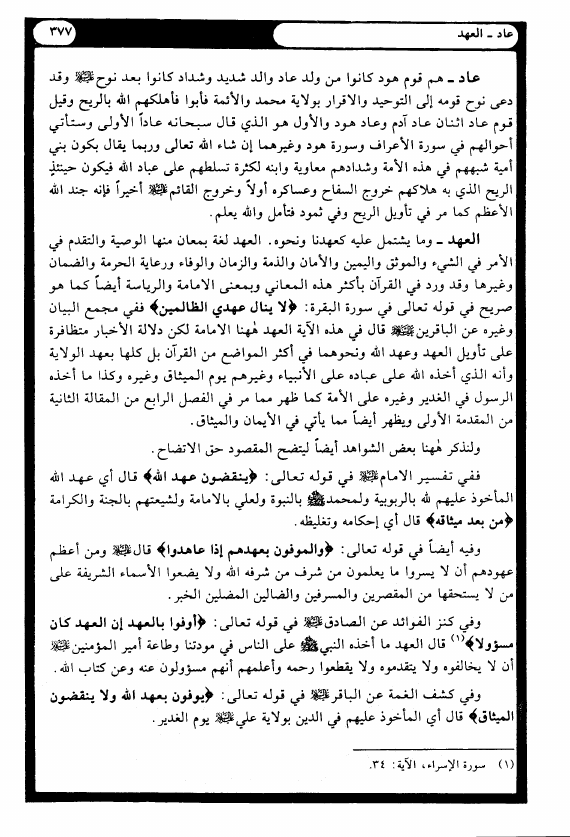 عاد ـ العهد
٣٧٧
عاد ـ هم قوم هود كانوا من ولد عاد والد شديد وشداد كانوا بعد نوح ﷺ وقد
دعى نوح قومه إلى التوحيد والاقرار بولاية محمد والأئمة فأبوا فأهلكهم الله بالريح وقيل
قوم عاد اثنان عاد آدم وعاد هود والأول هو الذي قال سبحانه عاداً الأولى وستأتي
أحوالهم في سورة الأعراف وسورة هود وغيرهما إن شاء الله تعالى وربما يقال بكون بني
أمية شبههم في هذه الأمة وشدادهم معاوية وابنه لكثرة تسلطهم على عباد الله فيكون حينئذٍ
الريح الذي به هلاكهم خروج السفاح وعساكره أولاً وخروج القائم ﷺ أخيراً فإنه جند الله
الأعظم كما مر في تأويل الريح وفي ثمود فتأمل والله يعلم.
العهد ـ وما يشتمل عليه كعهدنا ونحوه. العهد لغة بمعان منها الوصية والتقدم في
الأمر في الشيء والموثق واليمين والأمان والذمة والزمان والوفاء ورعاية الحرمة والضمان
وغيرها وقد ورد في القرآن بأكثر هذه المعاني وبمعنى الامامة والرياسة أيضاً كما هو
صريح في قوله تعالى في سورة البقرة: ﴿لا ينال عهدي الظالمين﴾ ففي مجمع البيان
وغيره عن الباقرين ﷺ قال في هذه الآية العهد هٰهنا الامامة لكن دلالة الأخبار متظافرة
على تأويل العهد وعهد الله ونحوهما في أكثر المواضع من القرآن بل كلها بعهد الولاية
وأنه الذي أخذه الله على عباده على الأنبياء وغيرهم يوم الميثاق وغيره وكذا ما أخذه
الرسول في الغدير وغيره على الأمة كما ظهر مما مر في الفصل الرابع من المقالة الثانية
من المقدمة الأولى ويظهر أيضاً مما يأتي في الأيمان والميثاق.
ولنذكر هٰهنا بعض الشواهد أيضاً ليتضح المقصود حق الاتضاح.
ففي تفسير الامام ﷺ في قوله تعالى: ﴿ينقضون عهد الله﴾ قال أي عهد الله
المأخوذ عليهم لله بالربوبية ولمحمد ﷺ بالنبوة ولعلي بالامامة ولشيعتهم بالجنة والكرامة
﴿من بعد ميثاقه﴾ قال أي إحكامه وتغليظه.
وفيه أيضاً في قوله تعالى: ﴿والموفون بعهدهم إذا عاهدوا﴾ قال ﷺ ومن أعظم
عهودهم أن لا يسروا ما يعلمون من شرف من شرفه الله ولا يضعوا الأسماء الشريفة على
من لا يستحقها من المقصرين والمسرفين والضالين المضلين الخبر.
وفي كنز الفوائد عن الصادق ﷺ في قوله تعالى: ﴿أوفوا بالعهد إن العهد كان
مسؤولا﴾(١) قال العهد ما أخذه النبي ﷺ على الناس في مودتنا وطاعة أمير المؤمنين ﷺ
أن لا يخالفوه ولا يتقدموه ولا يقطعوا رحمه وأعلمهم أنهم مسؤولون عنه وعن كتاب الله.
وفي كشف الغمة عن الباقر ﷺ في قوله تعالى: ﴿يوفون بعهد الله ولا ينقضون
الميثاق﴾ قال أي المأخوذ عليهم في الدين بولاية علي ﷺ يوم الغدير.
(١) سورة الإسراء، الآية: ٣٤.